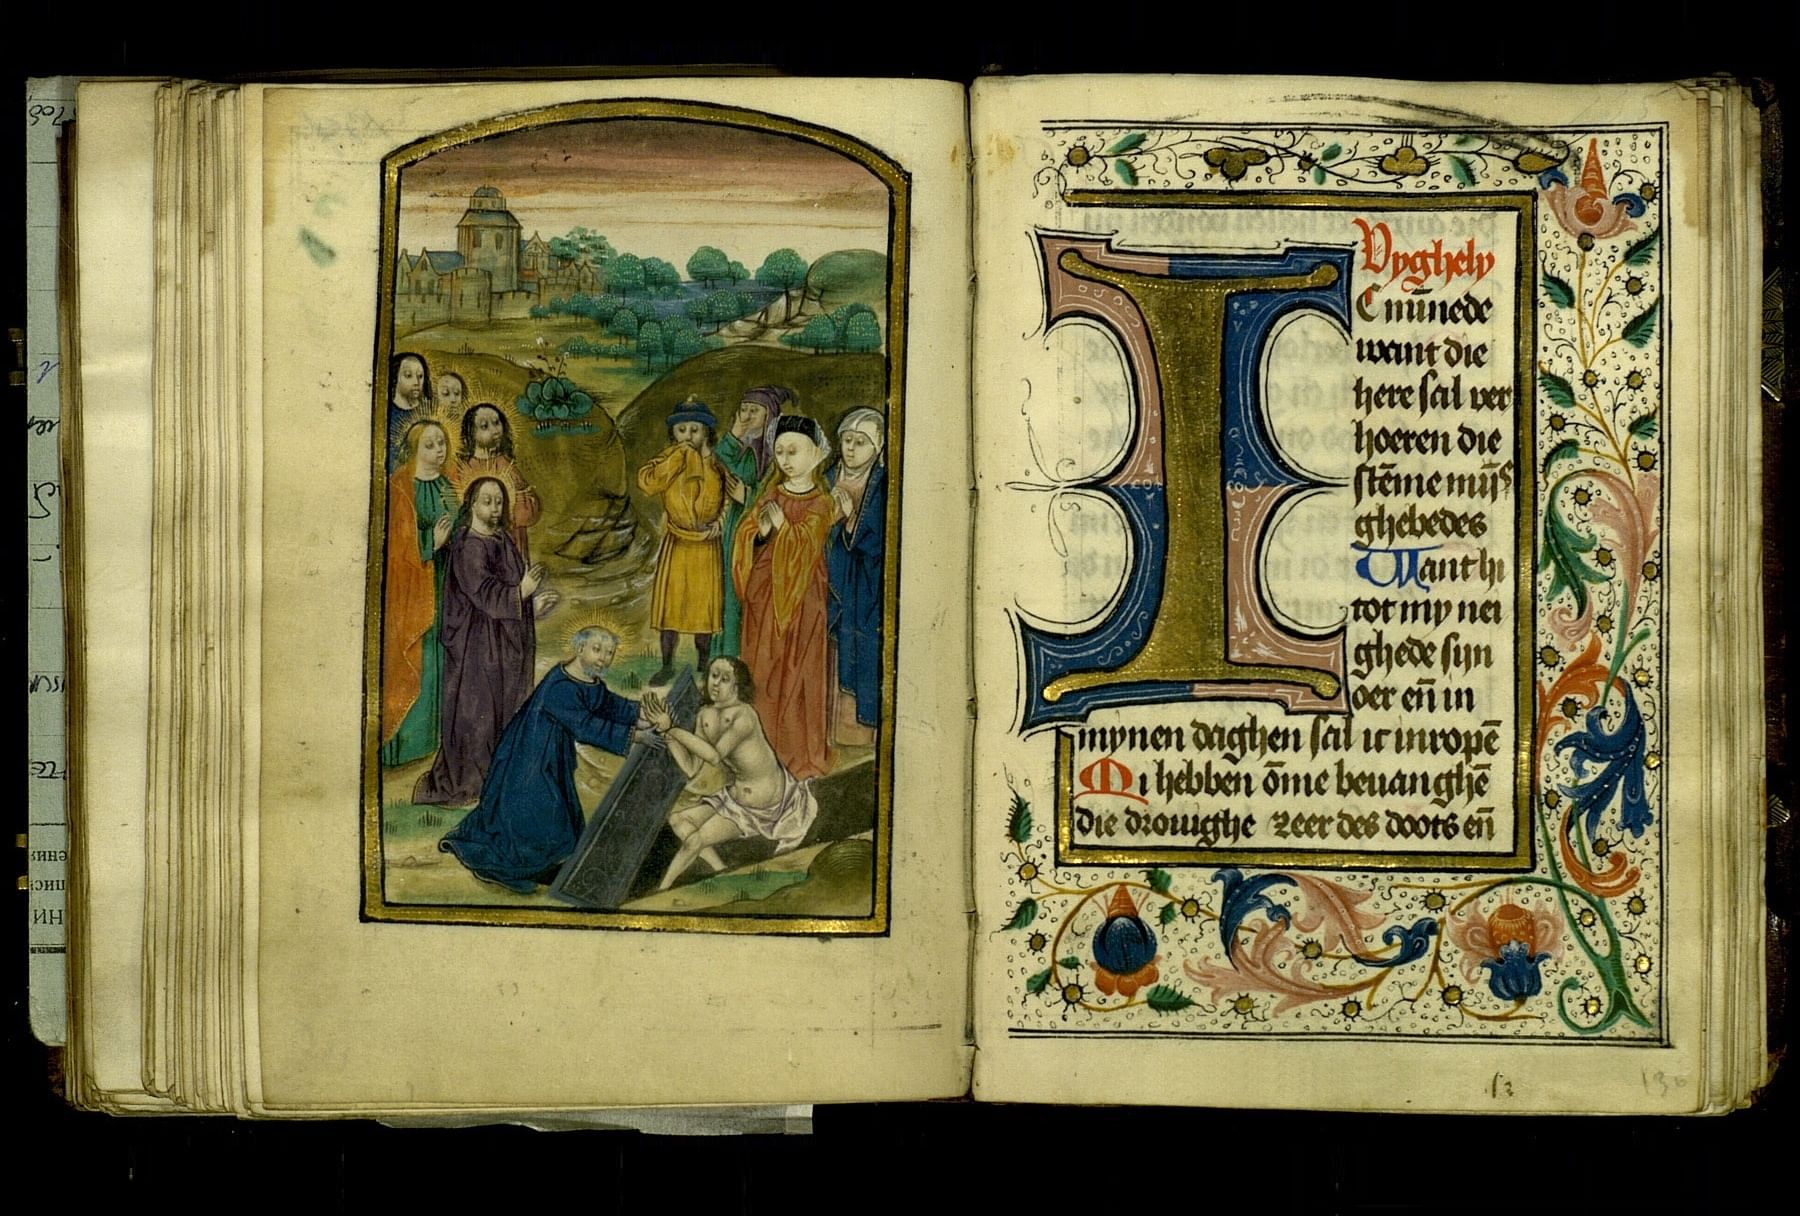 Vyghely
I
C mīnede
want die
here sal ver
hoeren die
stēme mijs
ghebedes
Want hi
tot my nei
ghede sijn
oer eñ in
mynen daghen sal ic inropē
Mi hebben ōme beuanghē
die drouighe zeer des doots eñ
130